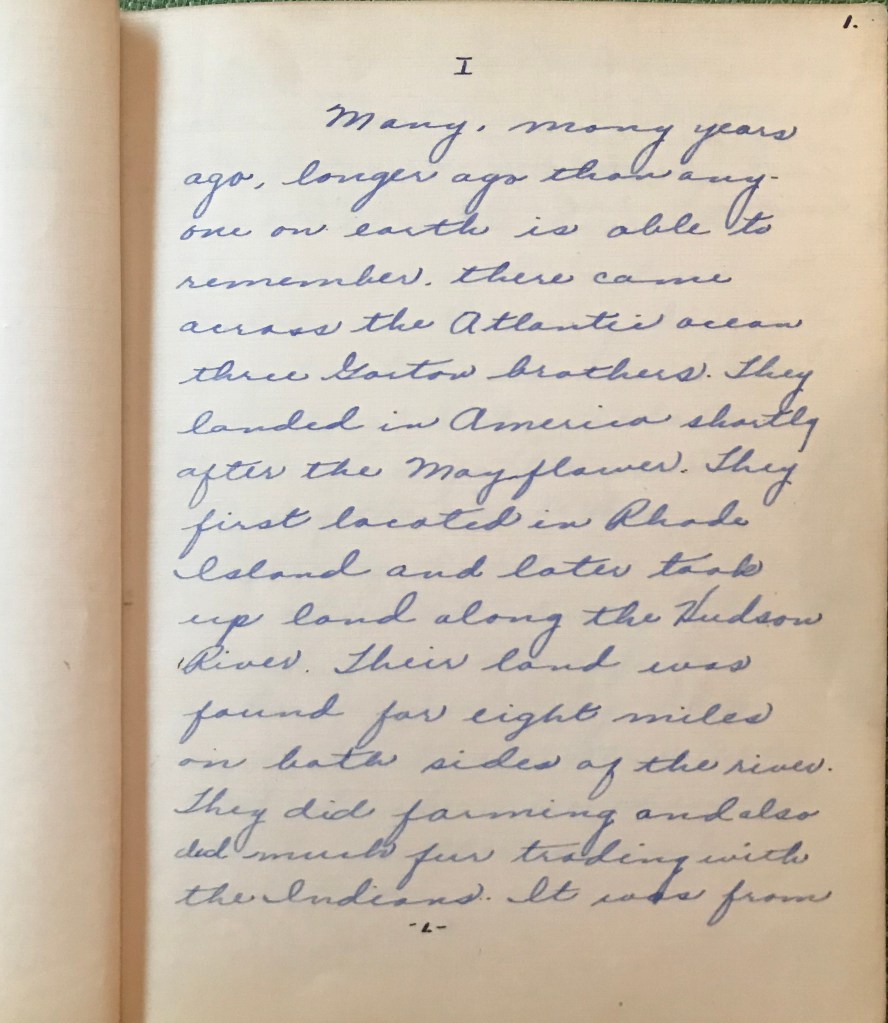 1.
I
Many, many years
ago, longer ago than any-
one on earth is able to
remember, there came
across the Atlantic ocean
three Gorton brothers. They
landed in America shortly
after the Mayflower. They
first located in Rhode
Island and later took
up land along the Hudson
River. Their land was
found for eight miles
on both sides of the river.
They did farming and also
did much fur trading with
the Indians. It was from
-1-